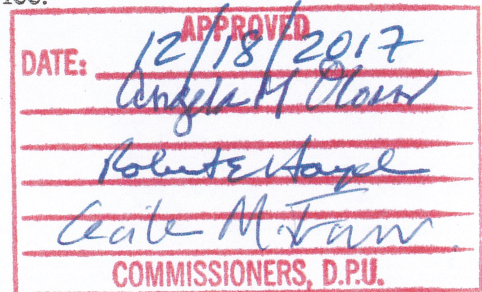 APPROVED
DATE: 12/18/2017
Angela M
Robert E Hayd
Cecile M. F
COMMISSIONERS, D.P.U.